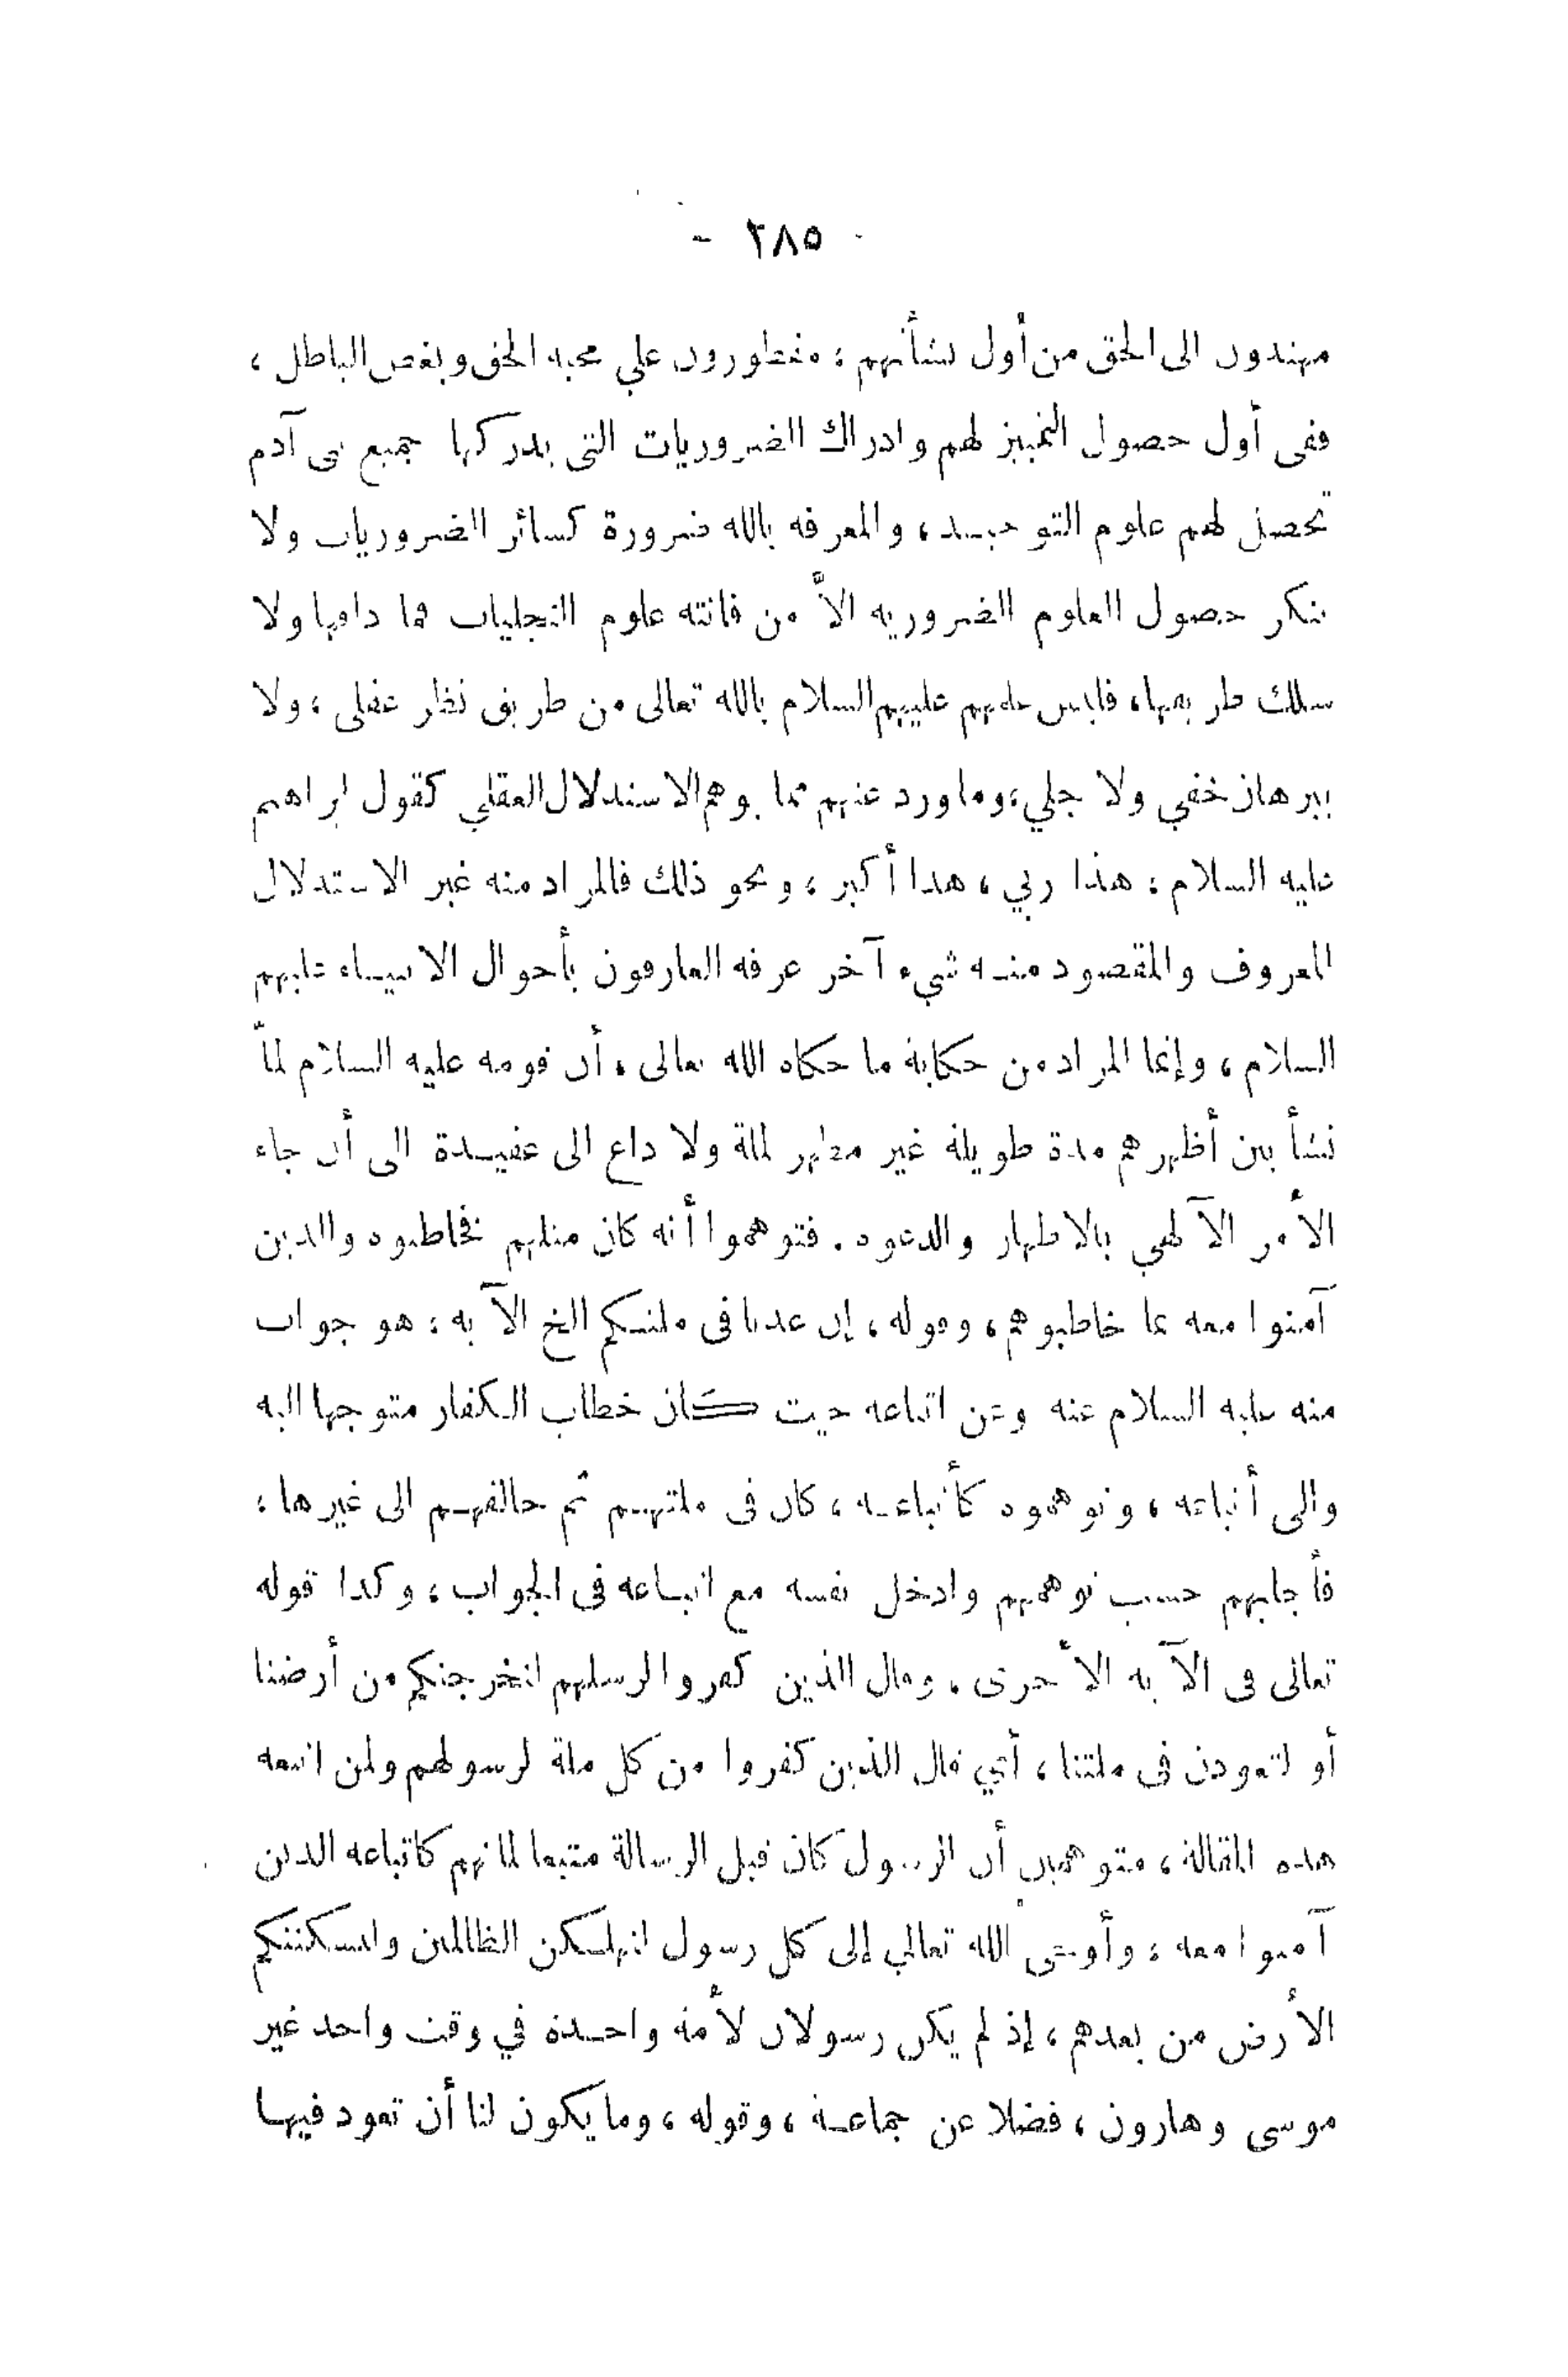 - ٢٨٥ -
مهتدون الى الحق من أول نشأتهم ؛ مفطورون علي محبة الحق وبغض الباطل ،
ففى أول حصول التمييز لهم وادراك الضروريات التى يدركها جميع بنى آدم
تحصل لهم علوم التوحيد ، والمعرفة بالله ضرورة كسائر الضروريات ولا
ينكر حصول العلوم الضرورية الاَّ من فاتته علوم التجليات فما ذاقها ولا
سلك طريقها ، فليس علمهم عليهم السلام بالله تعالى من طريق نظر عقلى ، ولا
ببرهان خفي ولا جلي ، وما ورد عنهم مما يوهم الاستدلال العقلي كقول ابراهيم
عليه السلام : هذا ربي ، هذا أكبر ، ونحو ذلك فالمراد منه غير الاستدلال
المعروف والمقصود منه شيء آخر عرفه العارفون بأحوال الانبياء عليهم
السلام ، وإنما المراد من حكاية ما حكاه الله تعالى ، أن قومه عليه السلام لماَّ
نشأ بين أظهرهم مدة طويلة غير مظهر لملة ولا داع الى عقيدة الى أن جاء
الأمر الآلهي بالاظهار والدعوه . فتوهموا أنه كان مثلهم فخاطبوه والذين
آمنوا معه بما خاطبوهم ، وقوله ، إن عدنا فى ملتكم الخ الآية ؛ هو جواب
منه عليه السلام عنه وعن اتباعه حيث كان خطاب الكفار متوجها اليه
والى أتباعه ، وتوهموه كأتباعه ، كان فى ملتهم ثم خالفهم الى غيرها ؛
فأجابهم حسب توهمهم وادخل نفسه مع اتباعه فى الجواب ، وكذا قوله
تعالى فى الآية الأخرى ، وقال الذين كفروا لرسلهم لنخرجنكم من أرضنا
أو لتعودن فى ملتنا ، أي قال الذين كفروا من كل ملة لرسولهم ولمن اتبعه
هذه المقالة ، متوهمين أن الرسول كان قبل الرسالة متبعا لملتهم كاتباعه الذين
آمنوا معه ؛ وأوحى الله تعالي إلى كل رسول لنهلكن الظالمين ولنسكننكم
الأرض من بعدهم ، إذ لم يكن رسولان لأمة واحدة في وقت واحد غير
موسى وهارون ، فضلا عن جماعة ، وقوله ، وما يكون لنا أن نعود فيها